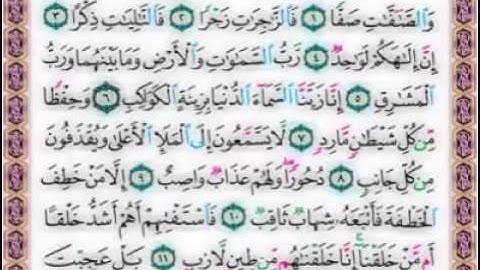 وَٱلصَّٰٓفَّٰتِ صَفّٗا ١ فَٱلزَّٰجِرَٰتِ زَجۡرٗا ٢ فَٱلتَّٰلِيَٰتِ ذِكۡرًا ٣
إِنَّ إِلَٰهَكُمۡ لَوَٰحِدٞ ٤ رَّبُّ ٱلسَّمَٰوَٰتِ وَٱلۡأَرۡضِ وَمَا بَيۡنَهُمَا وَرَبُّ
ٱلۡمَشَٰرِقِ ٥ إِنَّا زَيَّنَّا ٱلسَّمَآءَ ٱلدُّنۡيَا بِزِينَةٍ ٱلۡكَوَاكِبِ ٦ وَحِفۡظٗا
مِّن كُلِّ شَيۡطَٰنٖ مَّارِدٖ ٧ لَّا يَسَّمَّعُونَ إِلَى ٱلۡمَلَإِ ٱلۡأَعۡلَىٰ وَيُقۡذَفُونَ
مِن كُلِّ جَانِبٖ ٨ دُحُورٗاۖ وَلَهُمۡ عَذَابٞ وَاصِبٌ ٩ إِلَّا مَنۡ خَطِفَ
ٱلۡخَطۡفَةَ فَأَتۡبَعَهُۥ شِهَابٞ ثَاقِبٞ ١٠ فَٱسۡتَفۡتِهِمۡ أَهُمۡ أَشَدُّ خَلۡقًا
أَم مَّنۡ خَلَقۡنَآۚ إِنَّا خَلَقۡنَٰهُم مِّن طِينٖ لَّازِبِۭ ١١ بَلۡ عَجِبۡتَ